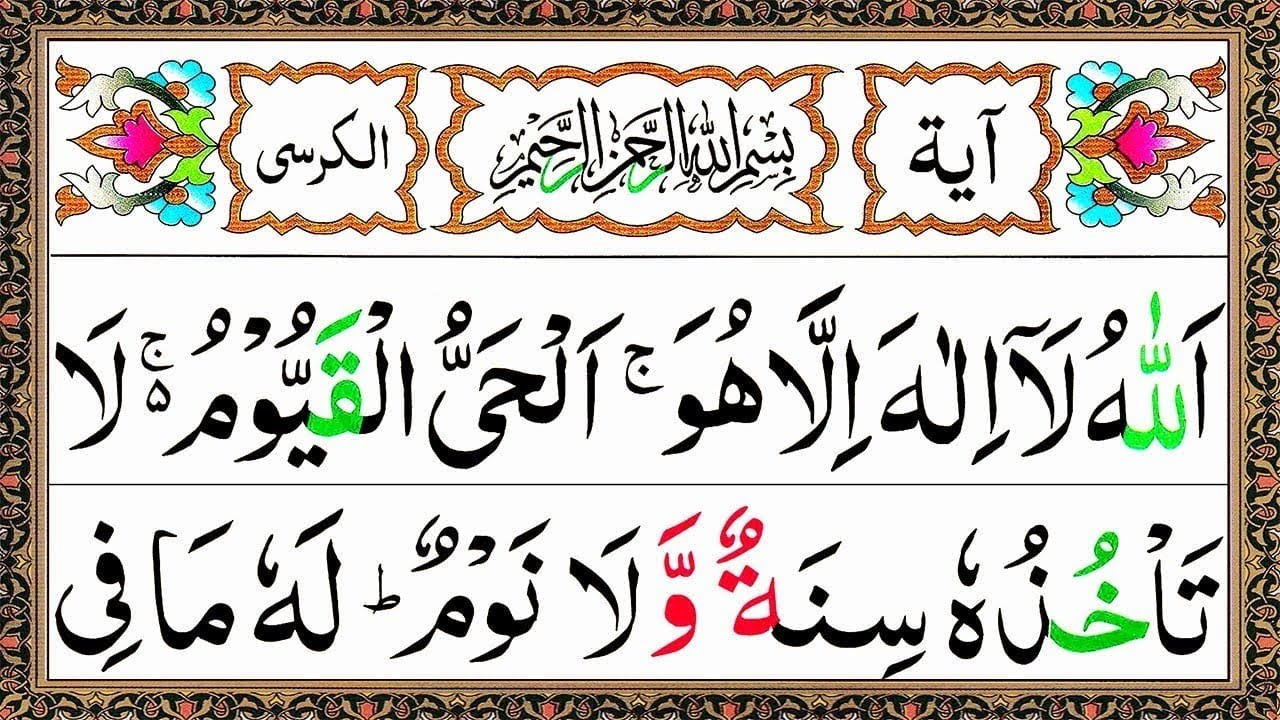 آية بِسْمِ اللّٰهِ الرَّحْمٰنِ الرَّحِيْمِ الكرسى
اَللّٰهُ لَآ اِلٰهَ اِلَّا هُوَ ۚ اَلْحَىُّ الْقَيُّوْمُ ۵ۚ لَا
تَاْخُذُهٗ سِنَةٌ وَّلَا نَوْمٌ ؕ لَهٗ مَا فِى